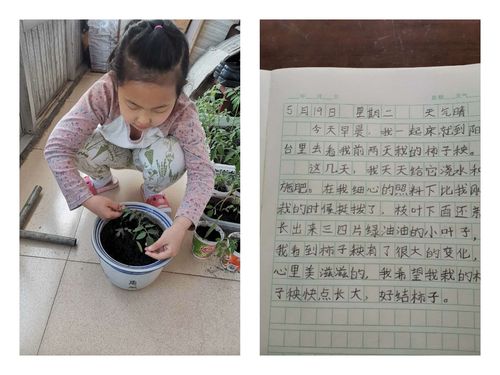 5月19日 星期二 天气晴
今天早晨,我一起床就到阳
台里去看我前两天栽的柿子秧。
这几天,我天天给它浇水和
施肥。在我细心的照料下比我刚
栽的时候挺拔了,枝叶下面还
长出来三四片绿油油的小叶子,
我看到柿子秧有了很大的变化,
心里美滋滋的,我希望我栽的柿
子秧快点长大,好结柿子。